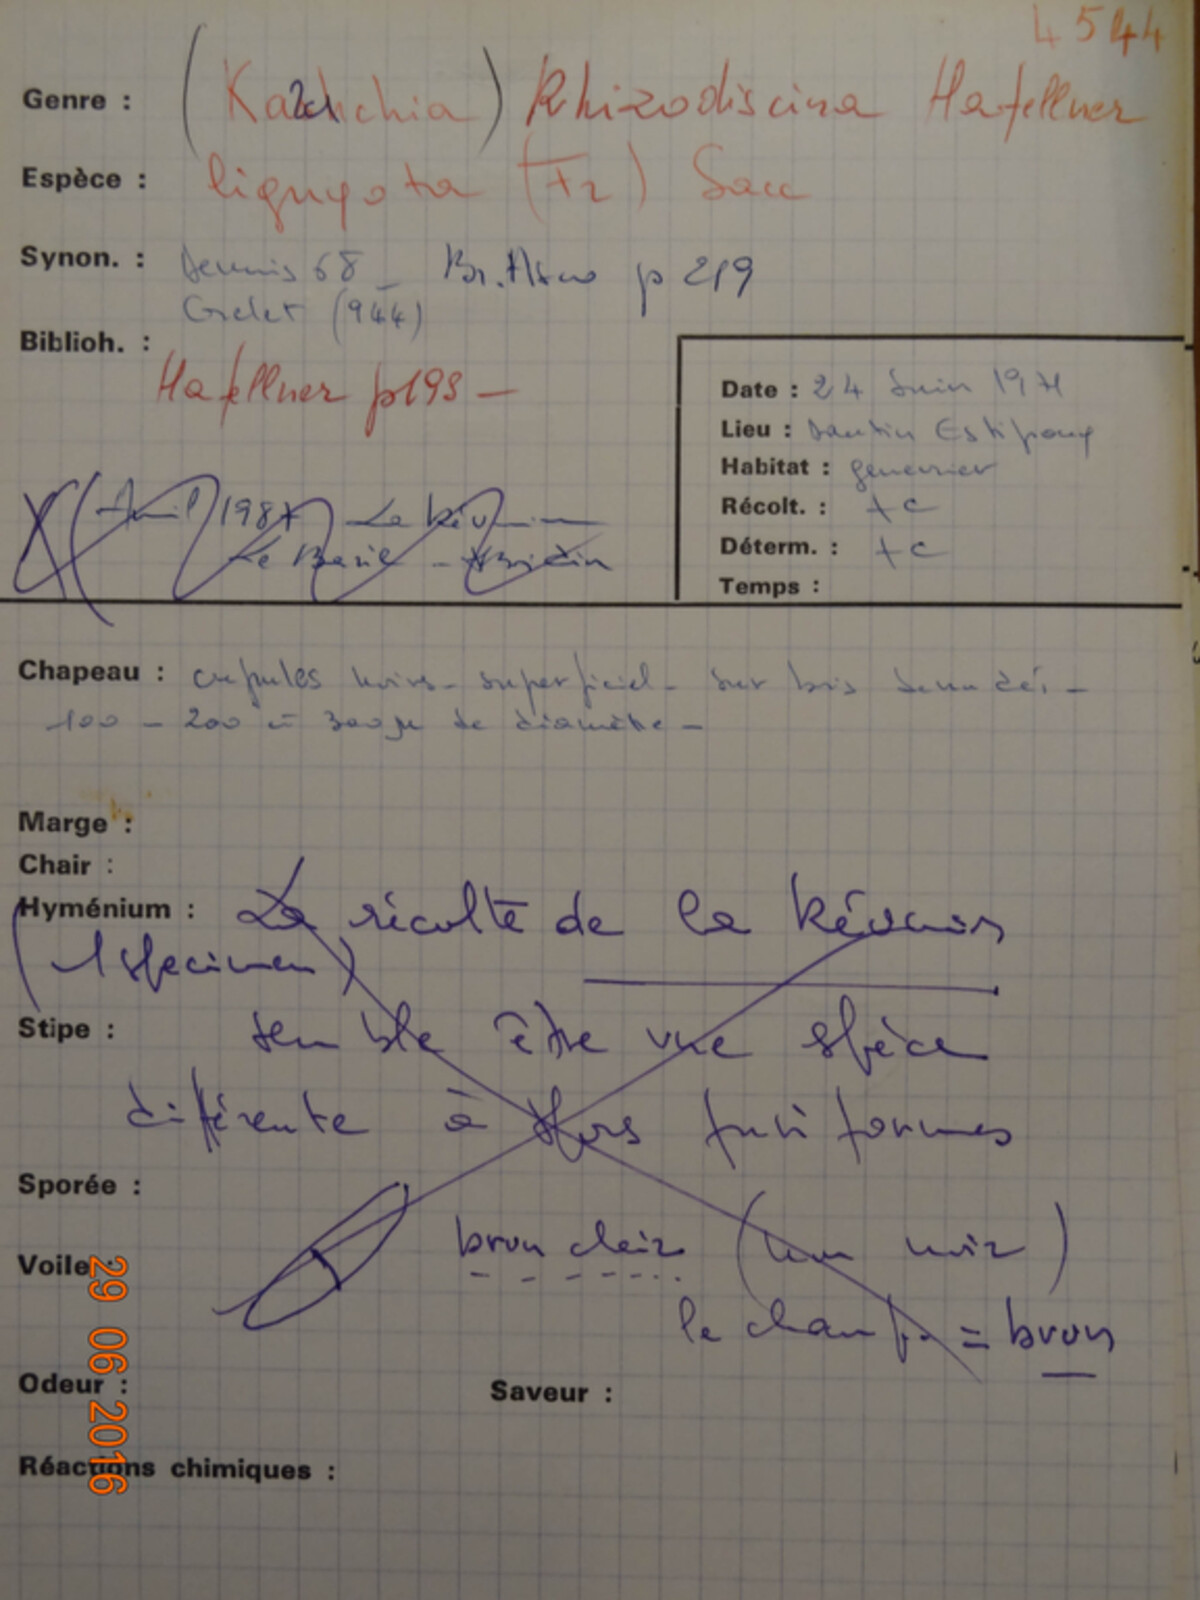 4544
Genre : (Karschia) Rhizodiscina Hafellner
Espèce : lignyota (Fr) Sacc
Synon. : Dennis 68 - Br. Asco p 219
Grelet (944)
Biblioh. :
Hafellner p 198 —
Date : 24 Juin 1971
Lieu :
Habitat : genevrier
Récolt. : + c
Déterm. : + c
Temps :
Avril 1987 - La Réunion
Le Baril -
Chapeau : cupules noires - superficiel - sur bois denudé -
100 - 200 à 300µ de diamètre -
Marge :
Chair :
Hyménium : La récolte de la Réunion
(1 specimen)
Stipe : semble être une spèce
différente à spores fusiformes
Sporée :
brun clair (non noir)
Voile :
le champ. = brun
Odeur :
Saveur :
Réactions chimiques :
29 06 2016